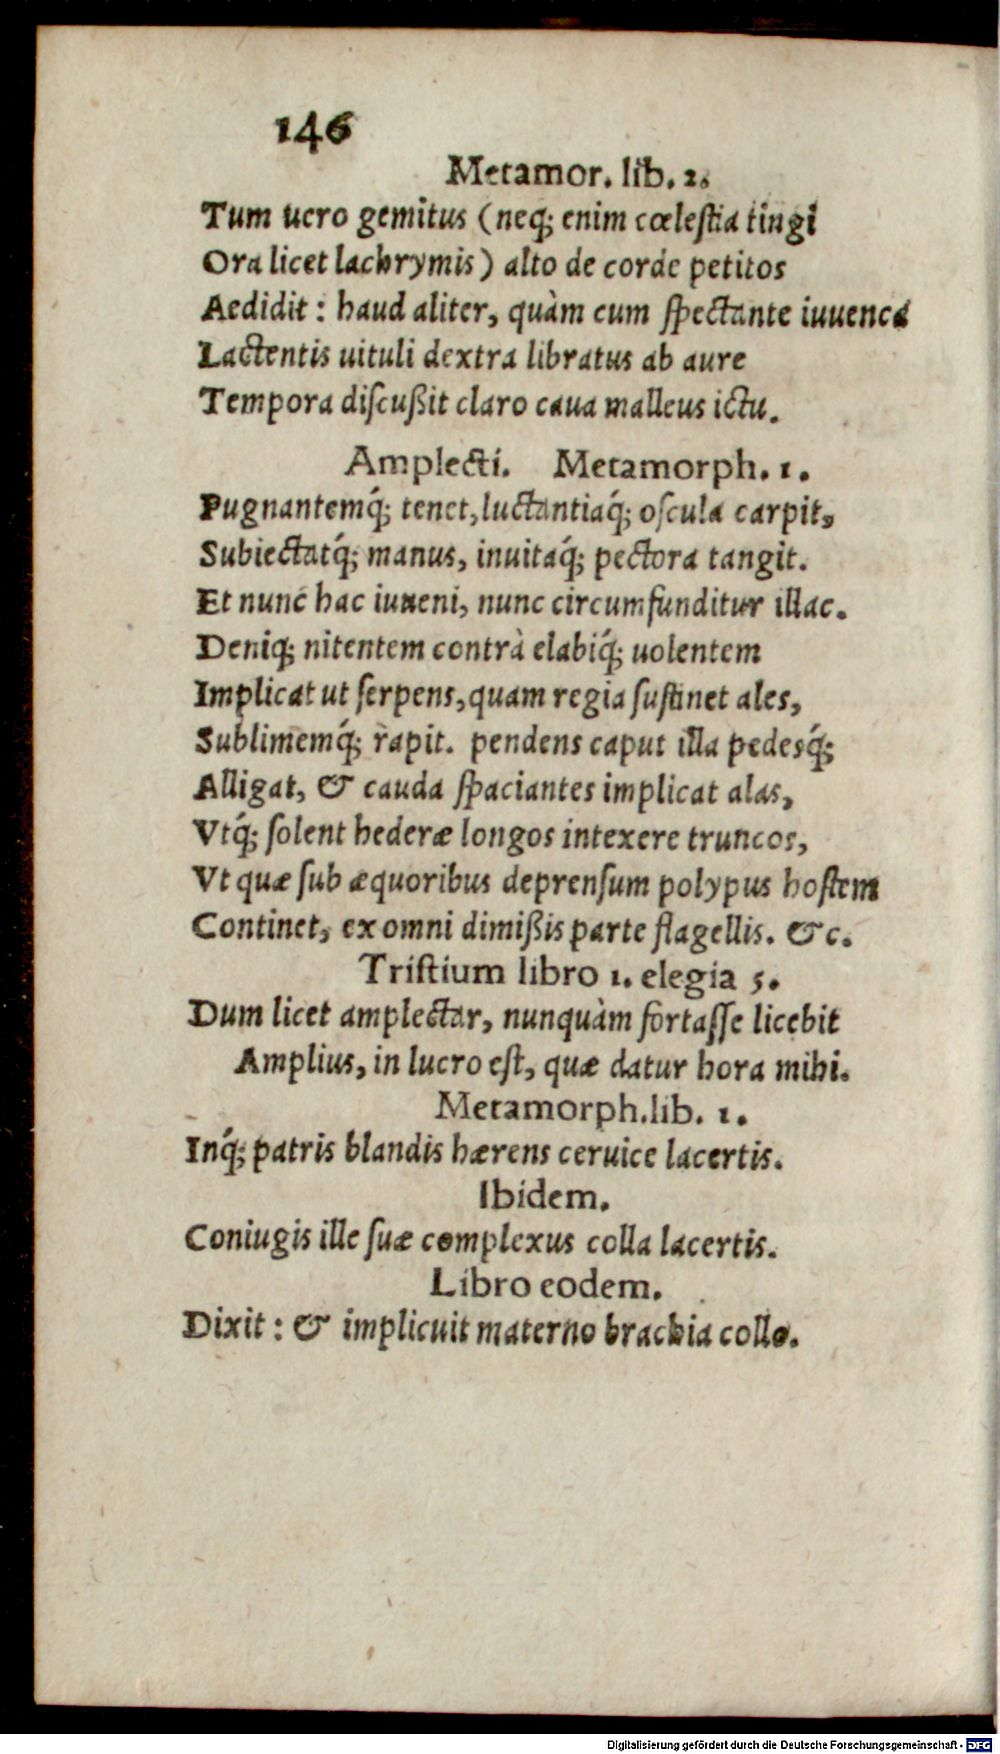 146
Metamor. lib. 2.
Tum uero gemitus (neq; enim cœleſtia tingi
Ora licet lachrymis) alto de corde petitos
Aedidit: haud aliter, quàm cum ſpectante iuuenca
Lactentis uituli dextra libratus ab aure
Tempora diſcußit claro caua malleus ictu.
Amplecti. Metamorph. 1.
Pugnantemq́; tenet, luctantiaq́; oſcula carpit,
Subiectatq́; manus, inuitaq́; pectora tangit.
Et nunc hac iuueni, nunc circumfunditur illac.
Deniq; nitentem contrà elabiq́; uolentem
Implicat ut ſerpens, quam regia ſuſtinet ales,
Sublimemq́; rapit. pendens caput illa pedesq́;
Alligat, & cauda ſpaciantes implicat alas,
Vtq́; ſolent hederæ longos intexere truncos,
Vt quæ ſub æquoribus deprenſum polypus hoſtem
Continet, ex omni dimißis parte flagellis. &c.
Triſtium libro 1. elegia 5.
Dum licet amplectar, nunquàm fortaſſe licebit
Amplius, in lucro eſt, quæ datur hora mihi.
Metamorph. lib. 1.
Inq́; patris blandis hærens ceruice lacertis.
Ibidem.
Coniugis ille ſuæ complexus colla lacertis.
Libro eodem.
Dixit: & implicuit materno brachia collo.
Digitalisierung gefördert durch die Deutsche Forschungsgemeinschaft - DFG